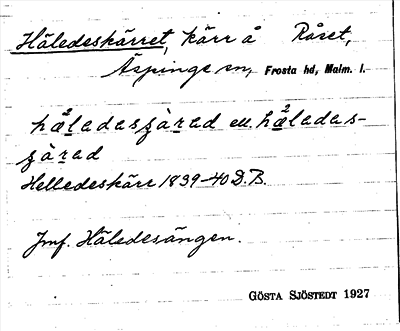 Häledeskärret, kärr å Råset,
Äspinge sn, Frosta hd, Malm. l.
hä²ladasʃärad ell. hä²ladas-
ʃärad
Helledeskärr 1839-40 D.B.
Jmf. Häledesängen.
GÖSTA SJÖSTEDT 1927